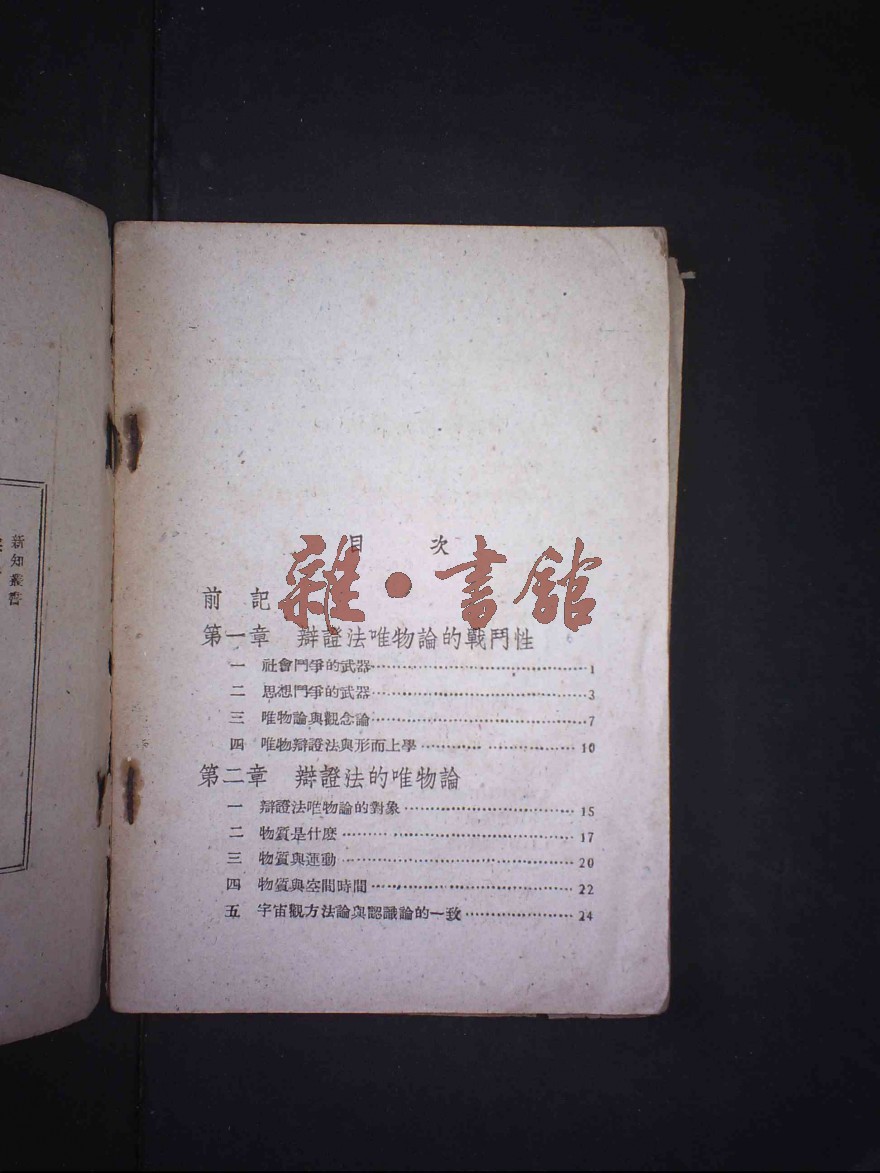 目 次
雜·書館
前 記
第一章 辯證法唯物論的戰鬥性
一 社會鬥爭的武器 1
二 思想鬥爭的武器 3
三 唯物論與觀念論 7
四 唯物辯證法與形而上學 10
第二章 辯證法的唯物論
一 辯證法唯物論的對象 15
二 物質是什麽 17
三 物質與運動 20
四 物質與空間時間 22
五 宇宙觀方法論與認識論的一致 24
新知叢書